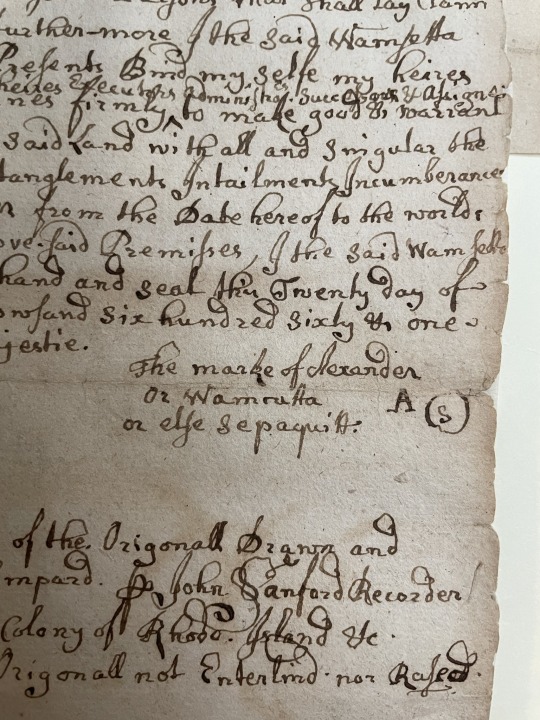 that shall lay Claim
further-more I the said Wamsetta
Presents Bind my selfe my heires
heires Executors Administrs. Successors & Assignes
nes firmly ‸ to make good & warrant
said Land with all and Singular the
tanglements Intailments Incumberances
from the Date hereof to the worlds
ove-said Premisses, I the said Wamsetta
hand and seal this Twenty day of
owsand six hundred sixty & one
jestie.
The marke of Alexander
Or Wamcutta A (S)
or else Sepaquitt.
of the Origonall Drawn and
mpard. John Sanford Recorder
Colony of Rhode-Island &c.
Origonall not Enterlind nor Rased.